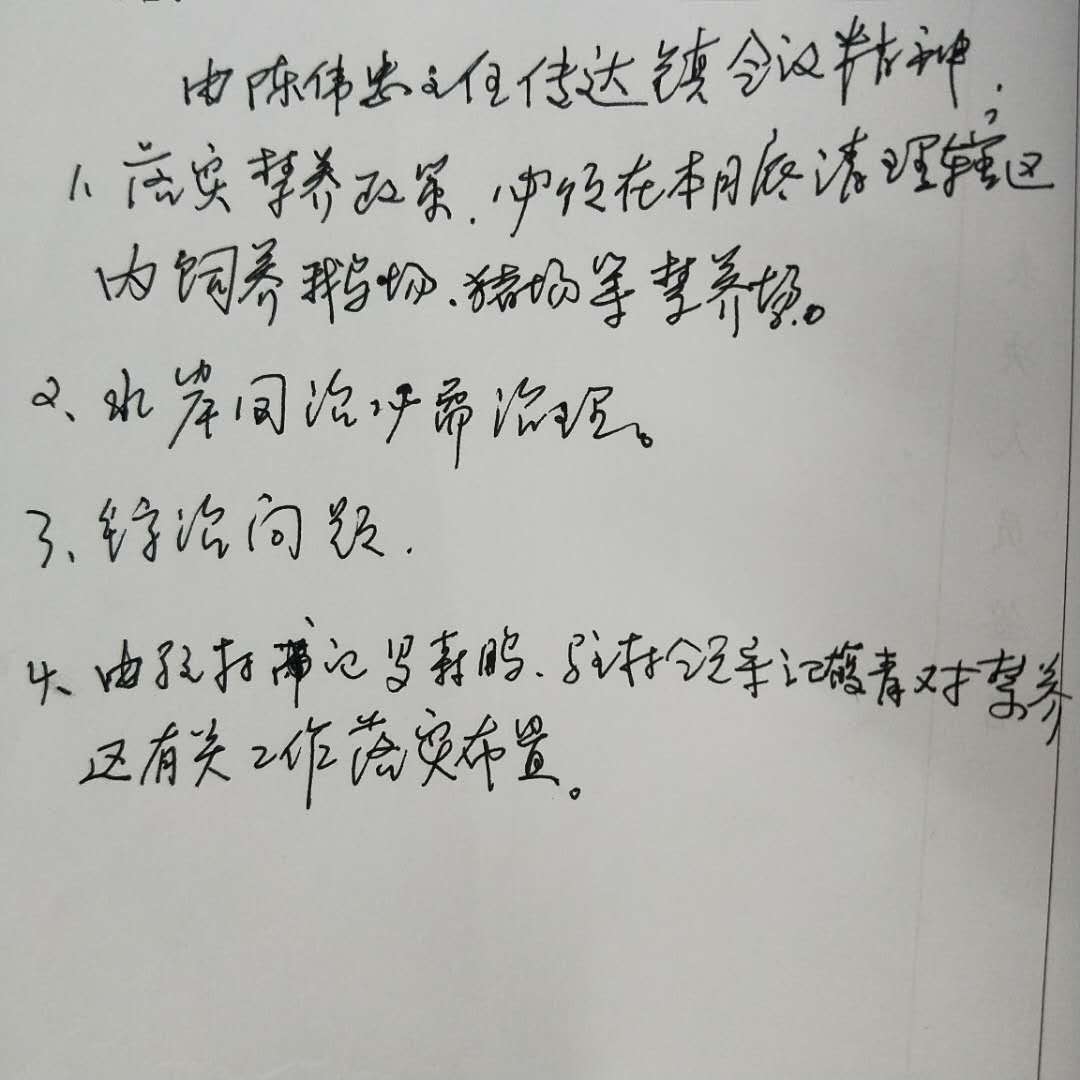 由陈伟忠主任传达镇会议精神.
1、落实禁养政策,必须在本月底清理辖区
内饲养鹅场、猪场等禁养场。
2、水岸同治,严需治理。
3、综治问题.
4、由驻村 记 森鹏、驻村领导 青对禁养
区有关工作落实布置。